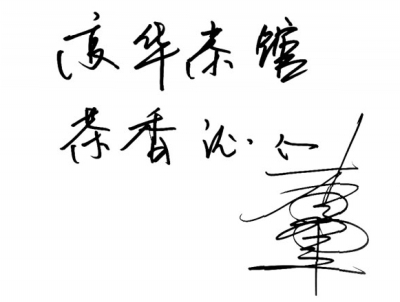 华茶馆
茶香沁心